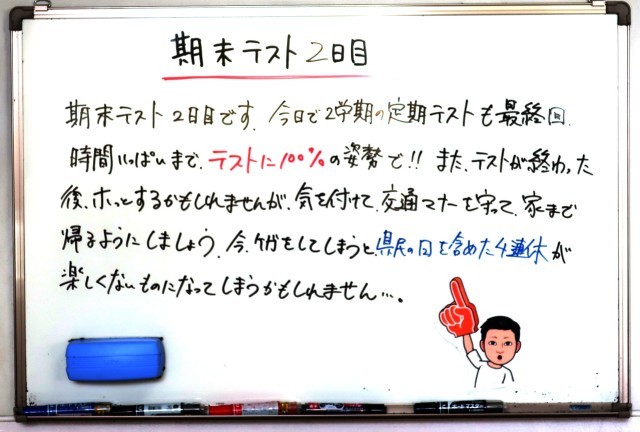 期末テスト2日目
期末テスト2日目です。今日で2学期の定期テストも最終回。
時間いっぱいまで、テストに100%の姿勢で!! また、テストが終わった
後、ホッとするかもしれませんが、気を付けて、交通マナーを守って、家まで
帰るようにしましょう。今、ケガをしてしまうと、県民の日を含めた4連休が
楽しくないものになってしまうかもしれません…。